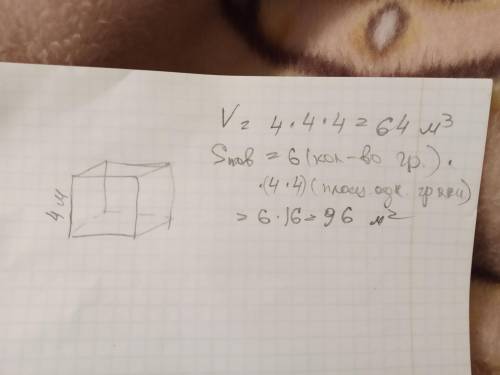 V = 4 · 4 · 4 = 64 м³
Sпов = 6 (кол-во гр.) ·
· (4 · 4) (площ. одн. грани)
= 6 · 16 = 96 м²
4 м